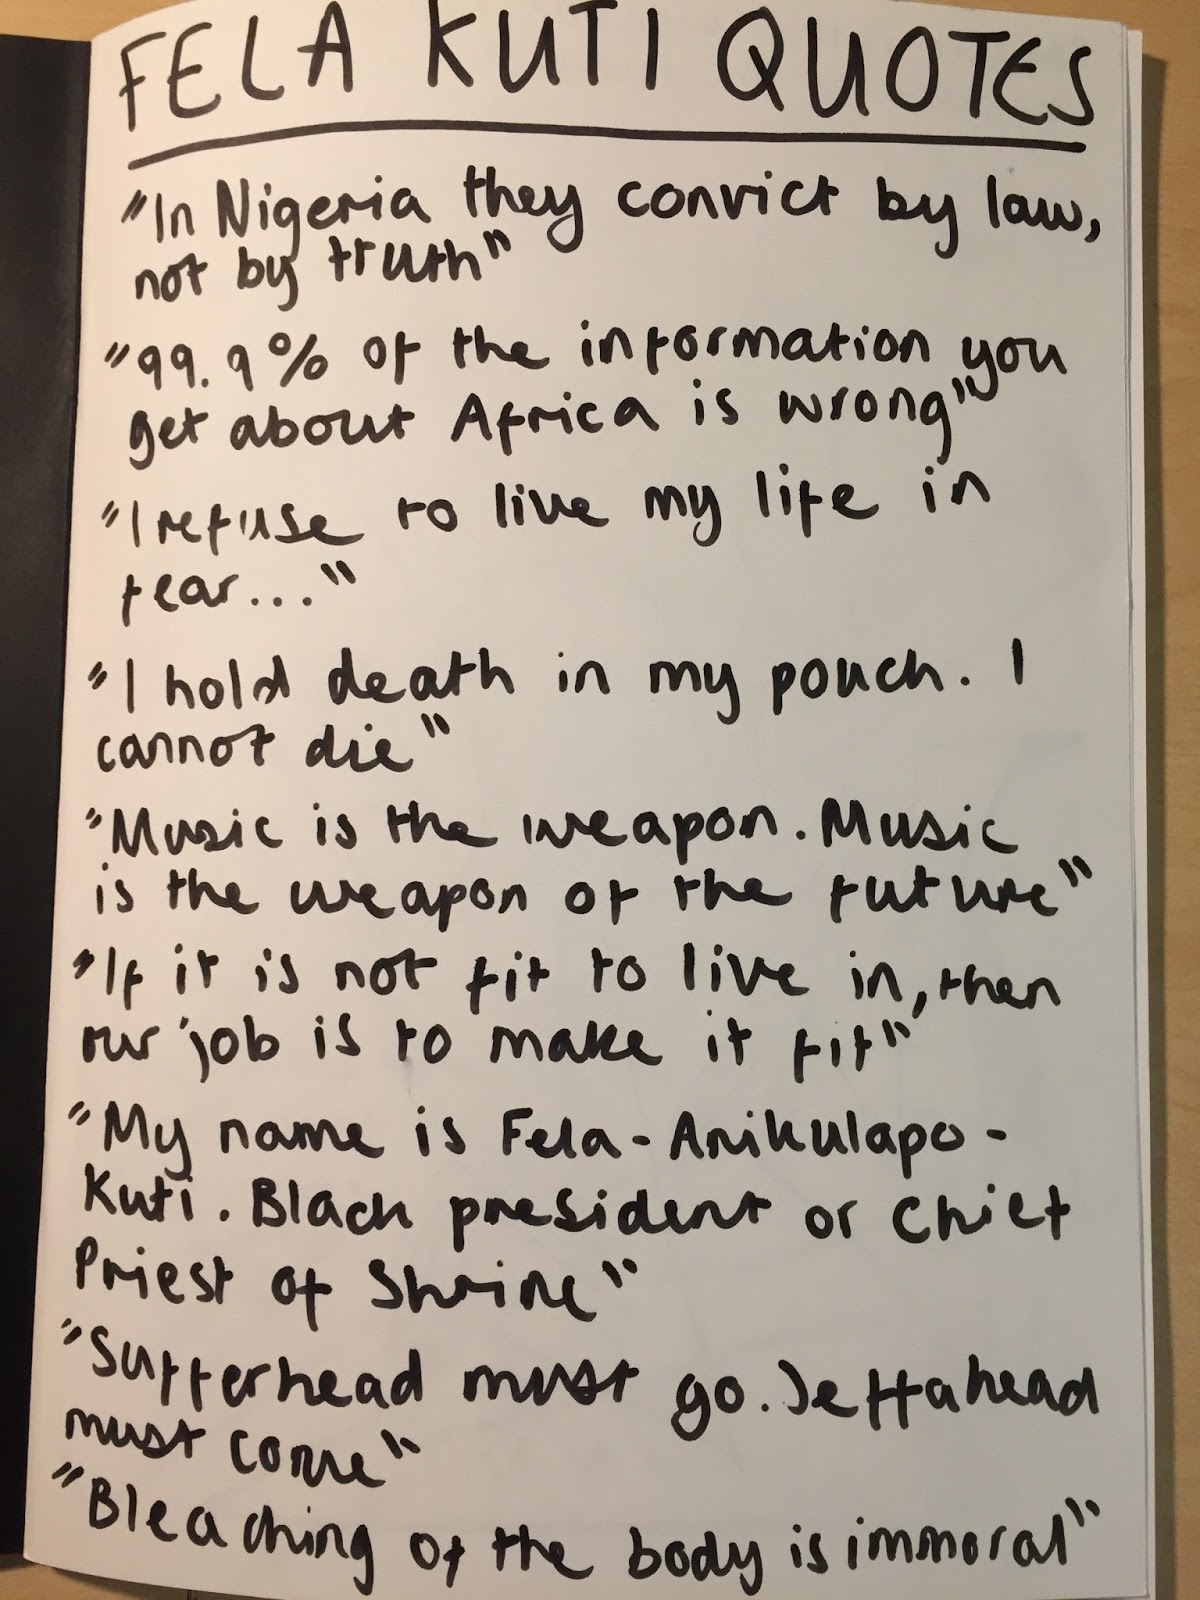 FELA KUTI QUOTES
"In Nigeria they convict by law,
not by truth"
"99.9% of the information you
get about Africa is wrong"
"I refuse to live my life in
fear..."
"I hold death in my pouch. I
cannot die"
"Music is the weapon. Music
is the weapon of the future"
"If it is not fit to live in, then
our job is to make it fit"
"My name is Fela-Anikulapo-
Kuti. Black president or Chief
Priest of Shrine"
"Sufferhead must go. Jeffahead
must come"
"Bleaching of the body is immoral"